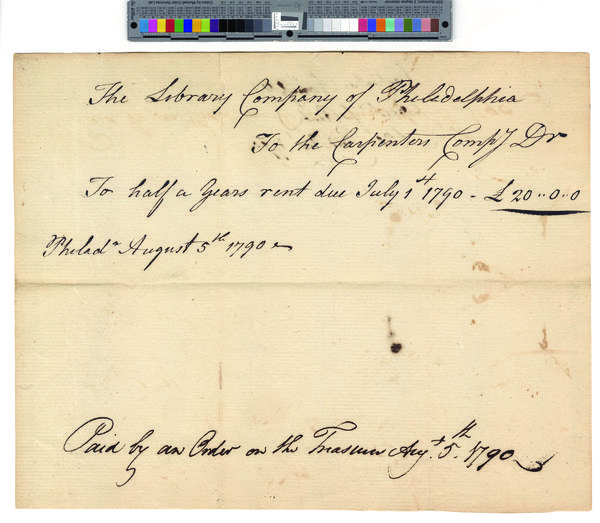 The Library Company of Philadelphia
To the Carpenters Compy Dr
To half a Years rent due July 1st 1790 - £ 20..0..0
Philada August 5th 1790
Paid by an Order on the Treasurer Augt. 5th. 1790